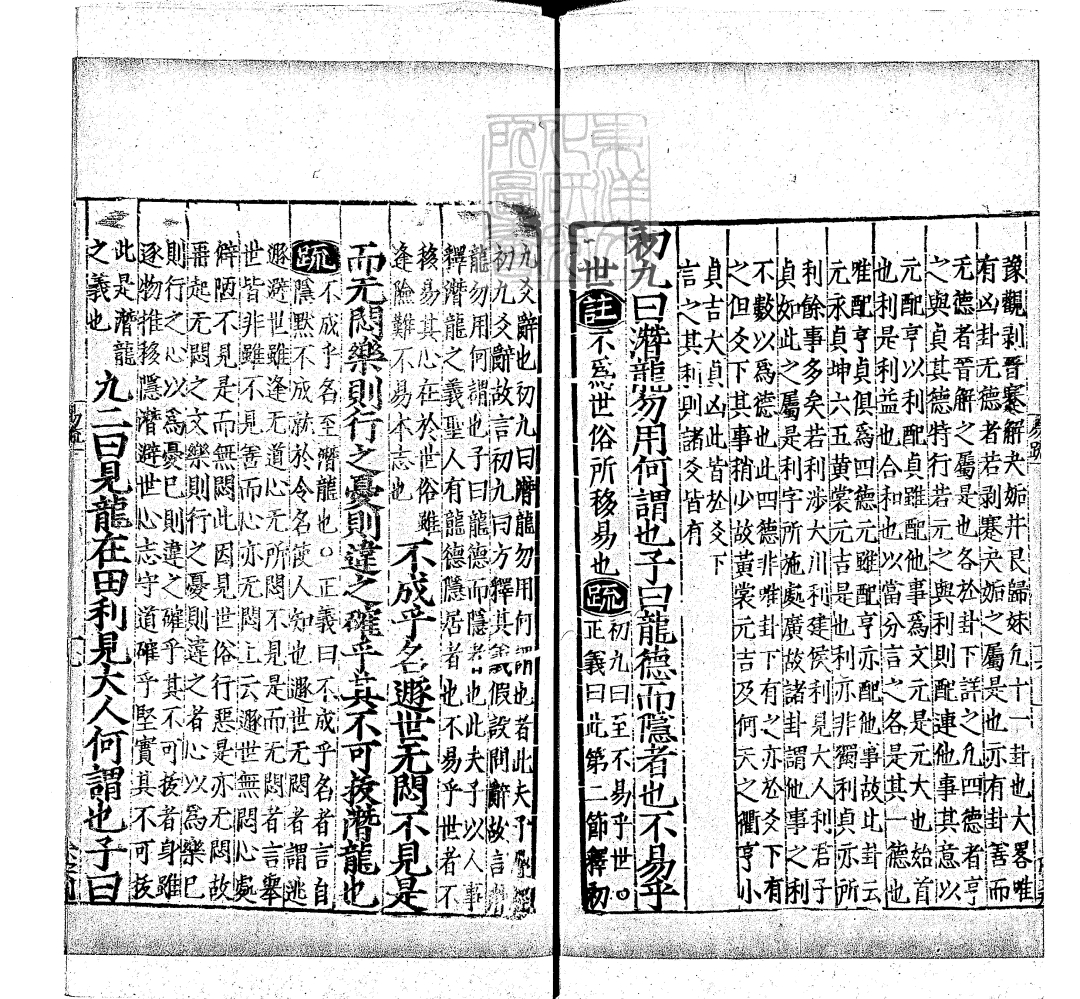 豫觀剥晉蹇解夬姤井艮歸妹凢十一卦也大畧唯
有凶卦无德者若剥蹇夬姤之屬是也亦有卦善而
无德者晉解之屬是也各於卦下詳之凢四德者亨
之與貞其德特行若元之與利則配連他事其意以
元配亨以利配貞雖配他事爲文元是元大也始首
也利是利益也合和也以當分言之各是其一德也
唯配亨貞俱爲四德元雖配亨亦配他事故比卦云
元永貞坤六五黄裳元吉是也利亦非獨利貞亦所
利餘事多矣若利涉大川利建侯利見大人利君子
貞如此之屬是利字所施處廣故諸卦謂他事之利
不數以爲德也此四德非唯卦下有之亦於爻下有
之但爻下其事稍少故黄裳元吉及何天之衢亨小
貞吉大貞凶此皆於爻下
言之其利則諸爻皆有
初九曰潛龍勿用何謂也子曰龍德而隱者也不易乎
世 註 不爲世俗所移易也 疏 初九曰至不易乎世○
正義曰此第二節釋初
九爻辭也初九曰潛龍勿用何謂也者此夫子
初九爻辭故言初九曰方釋其義假設問辭故言潛
龍勿用何謂也子曰龍德而隱者也此夫子以人事
釋潛龍之義聖人有龍德隱居者也不易乎世者不
移易其心在於世俗雖
逢險難不易本志也
不成乎名遯世无悶不見是
而无悶樂則行之憂則違之確乎其不可拔潛龍也
疏 不成乎名至潛龍也○正義曰不成乎名者言自
隱黙不成就於令名使人知也遯世无悶者謂逃
遯避世雖逢无道心无所悶不見是而无悶者言舉
世皆非雖不見善而心亦无悶上云遯世無悶心處
僻陋不見是而無悶此因見世俗行惡是亦无悶故
再起无悶之文樂則行之憂則違之者心以爲樂已
則行之心以爲憂已則違之確乎其不可拔者身雖
逐物推移隱潛避世心志守道確乎堅實其不可拔
此是潛龍
之義也
九二曰見龍在田利見大人何謂也子曰